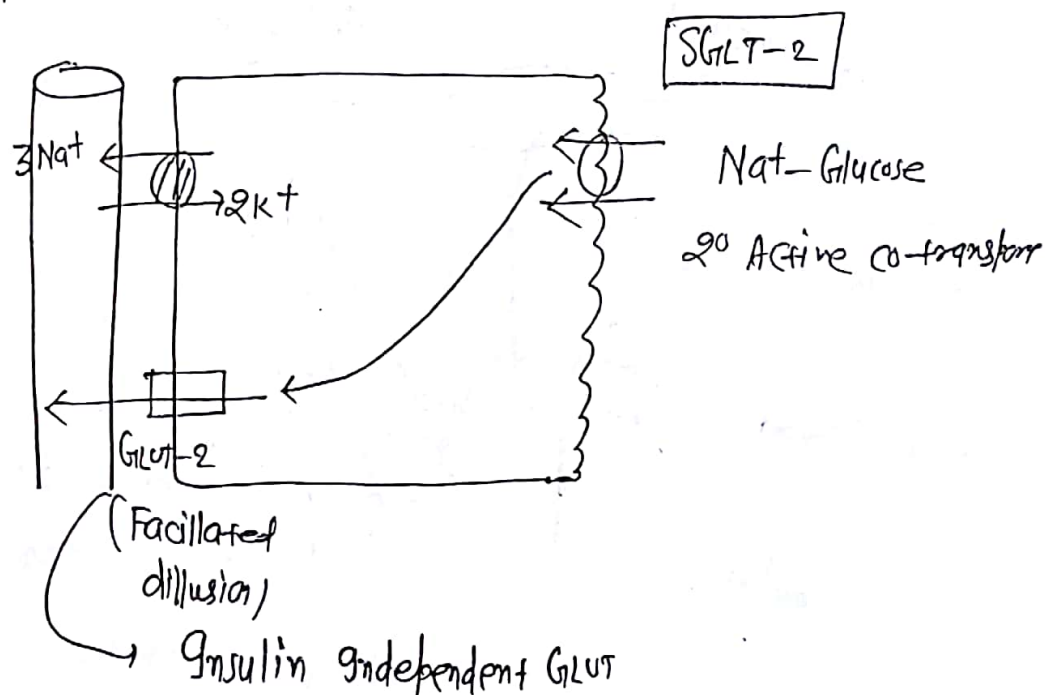 SGLT-2
3Na+
2K+
Na+-Glucose
2° Active co-transport
GLUT-2
(Facillated
dillusion)
Insulin Independent GLUT